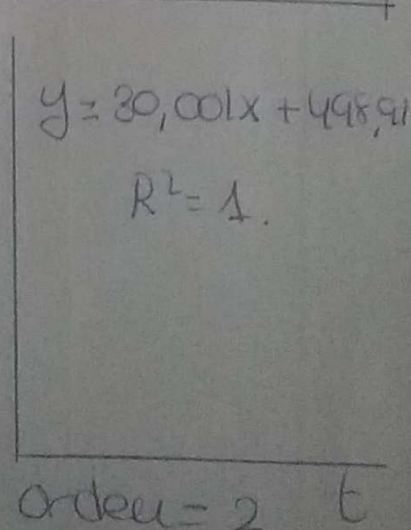 y = 30,001x + 498,91
R² = 1.
orden = 2 t